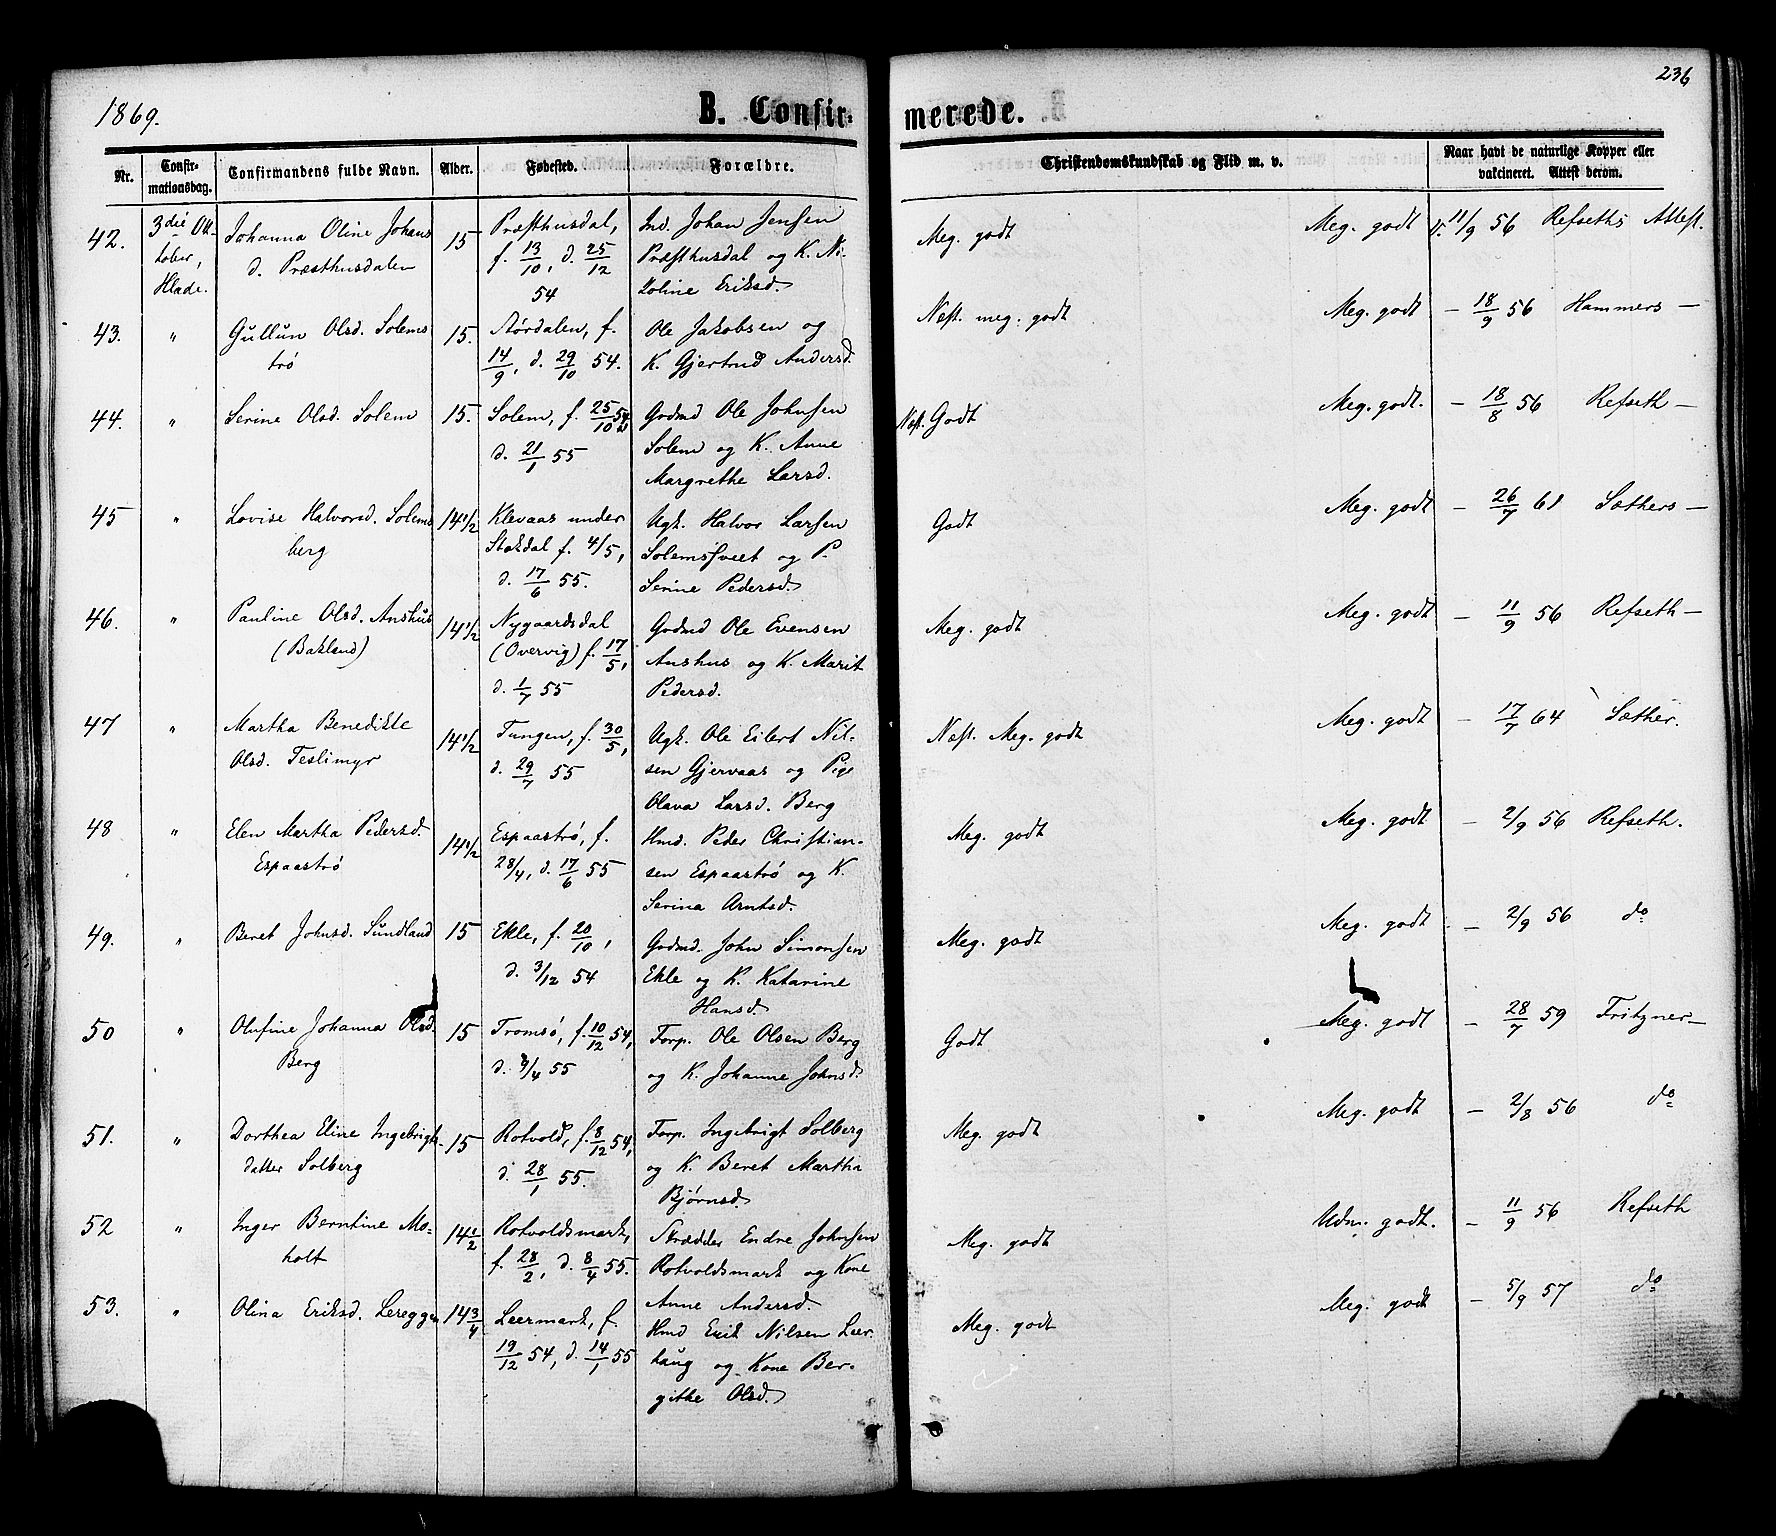 1869.
B. Confirmerede.
236
Nr.
Confirmationsdag.
Confirmandens fulde Navn.
Alder.
Fødested.
Forældre.
Christendomskundskab og Flid m. v.
Naar havt de naturlige Kopper eller
vakcineret. Attest derom.
42. 3die Ok- Johanna Oline Johans 15 Præsthusdal, Ind. Johan Jensen Meg. godt Meg. godt v. 11/9 56 Refseths Attest.
tober, d. Præsthusdalen f. 13/10, d. 25/12 Præsthusdal og K. Ni-
Hlade. 54 koline Eriksd.
43. " Gullun Olsd. Solems 15. Størdalen, f. Ole Jakobsen og Nest. meg. godt Meg. godt – 18/9 56 Hammers –
trö 14/9, d. 29/10 54. K. Gjertrud Andersd.
44. " Serine Olsd. Solem 15. Solem, f. 25/10 54 Gadmd Ole Johnsen Nest. Godt Meg. godt. – 18/8 56 Refseth –
d. 21/1 55 Solem og K. Anne
Margrethe Larsd.
45 " Lovise Halvorsd. Solems 14 1/2 Klevaas under Ugk. Halvor Larsen Godt Meg. godt – 26/7 61 Sæthers –
berg Stokdal f. 4/5, Solemsveet og P.
d. 17/6 55. Serine Pedersd.
46. " Pauline Olsd. Anshus 14 1/2 Nygaardsdal Gadmd Ole Evensen Meg. godt Meg. godt – 11/9 56 Refseth –
(Bakland) (Overvig) f. 17/5, Anshus og K. Marit
d. 1/7 55 Pedersd.
47 " Martha Benedikte 14 1/2 Tungen, f. 30/5, Ugk. Ole Eilert Nil- Nest. Meg. godt Meg. godt – 17/7 64 Sæther.
Olsd. Teslimyr d. 29/7 55 sen Gjervaas og Pige
Olava Larsd. Berg
48 " Elen Martha Pedersd. 14 1/2 Espaaströ, f. Hmd. Peder Christian- Meg. godt Meg. godt – 2/9 56 Refseth.
Espaaströ 28/4, d. 17/6 55 sen Espaaströ og K.
Serina Arntsd.
49. " Beret Johnsd. Sundland 15 Ekle, f. 20/10, Gadmd. John Simonsen Meg. godt Meg. godt – 2/9 56 do
d. 3/12 54 Ekle og K. Katarine
Hansd.
50 " Olufine Johanna Olsd. 15 Tromsö, f. 10/12 54, Forp. Ole Olsen Berg Godt Meg. godt – 28/7 59 Fritzner –
Berg d. 3/4 55 og K. Johanne Johnsd.
51. " Dorthea Eline Ingebrigt- 15 Rotvold, f. 8/12 54, Forp. Ingebrigt Solberg Meg. godt Meg. godt – 2/8 56 do
datter Solberg d. 28/1 55. og K. Beret Martha
Bjørnsd.
52 " Inger Berntine Mo- 14 1/2 Rotvoldsmark, Skrædder Endre Johnsen Meg. godt Udm. godt. – 11/9 56 Refseth
holt f. 28/2, d. 8/4 55. Rotvoldsmark og Kone
Anne Andersd.
53. " Olina Eriksd. Lereggen 14 3/4 Leermark, f. Hmd Erik Nilsen Leer- Meg. godt Meg. godt – 5/9 57 do
19/12 54, d. 14/1 55 haug og Kone Ber-
githe Olsd.